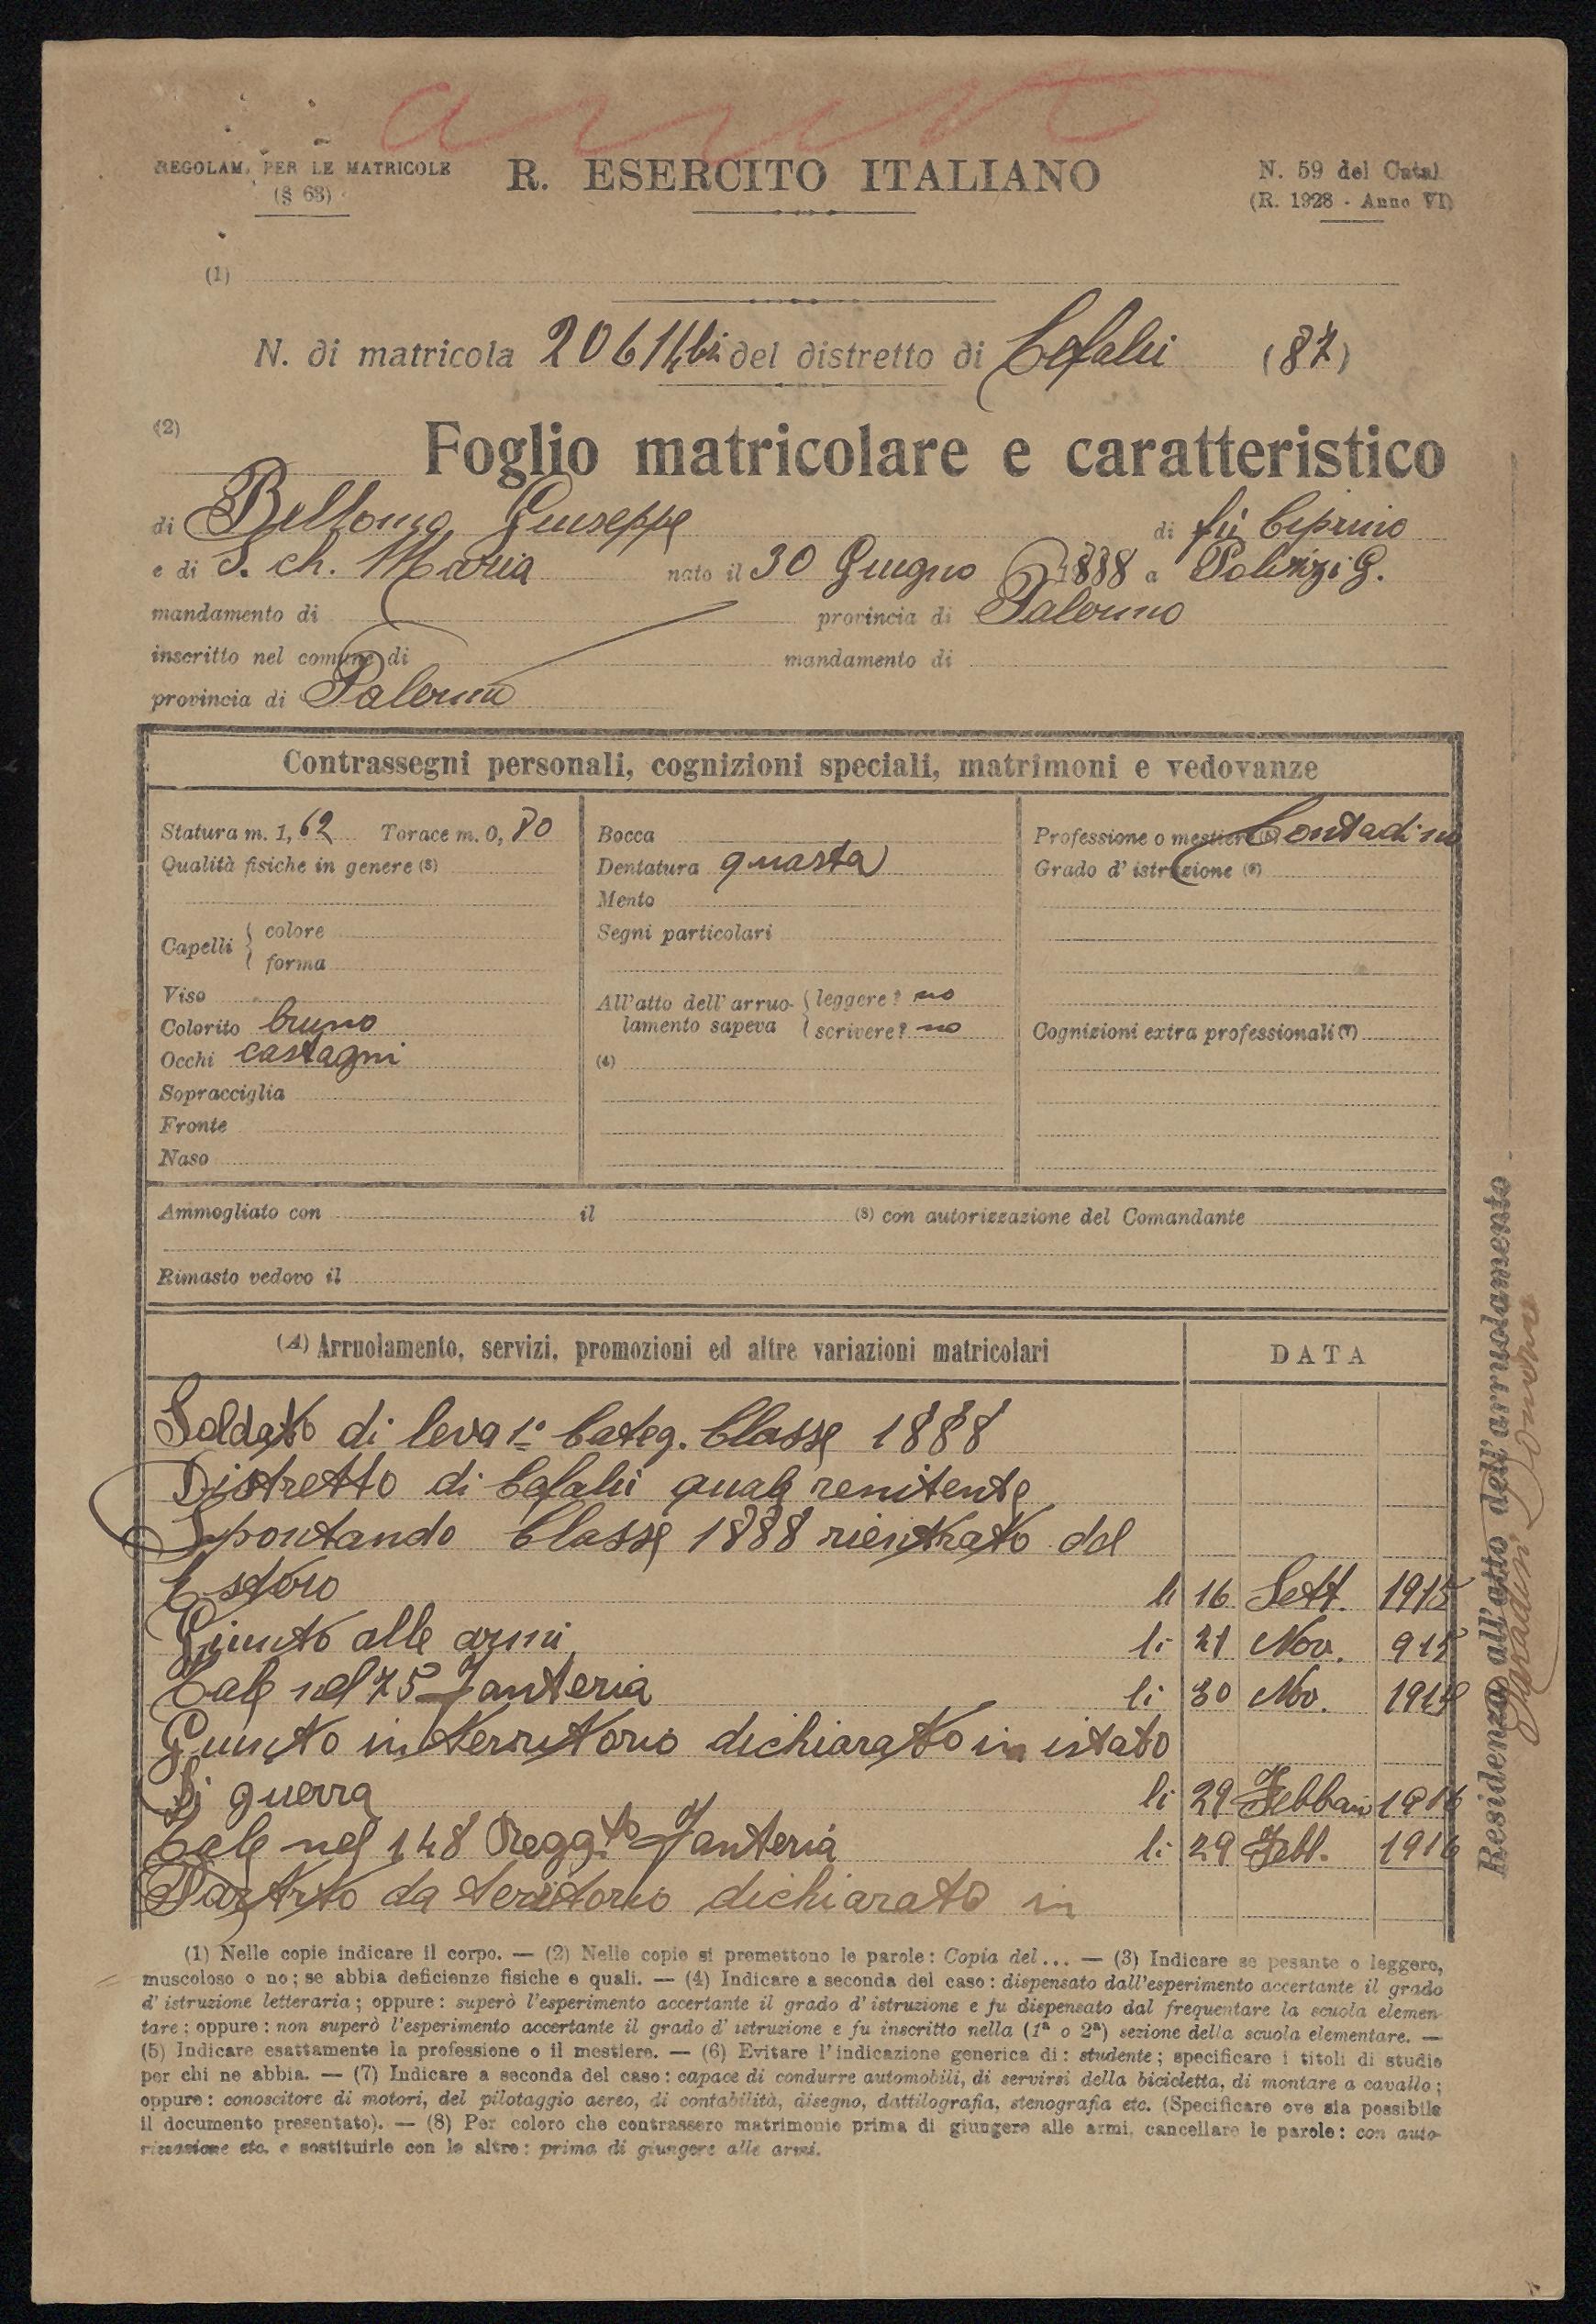 REGOLAM. PER LE MATRICOLE
(§ 63)
R. ESERCITO ITALIANO
N. 59 del Catal
(R. 1928 - Anno VI)
(1)
N. di matricola 20614 bis del distretto di Cefalù (87)
(2)
Foglio matricolare e caratteristico
di Bellomo Giuseppe di fù Ciprino
e di S. ch. Maria nato il 30 Giugno 1888 a Polizzi G.
mandamento di provincia di Palermo
inscritto nel comune di mandamento di
provincia di Palermo
Contrassegni personali, cognizioni speciali, matrimoni e vedovanze
Statura m. 1, 62 Torace m. 0, 80
Qualità fisiche in genere (3)
Capelli { colore
forma
Viso
Colorito bruno
Occhi castagni
Sopracciglia
Fronte
Naso
Bocca
Dentatura guasta
Mento
Segni particolari
All'atto dell'arruo- { leggere? no
lamento sapeva { scrivere? no
(4)
Professione o mestiere (5) Contadino
Grado d'istruzione (6)
Cognizioni extra professionali (7)
Ammogliato con il (8) con autorizzazione del Comandante
Rimasto vedovo il
(A) Arruolamento, servizi, promozioni ed altre variazioni matricolari DATA
Soldato di leva 1ª Categ. Classe 1888
Distretto di Cefalù quale renitente
Spontando Classe 1888 rientrato dal
Estero li 16 Sett. 1915
Giunto alle armi li 21 Nov. 915
Tale nel 75 Fanteria li 30 Nov. 1915
Giunto in territorio dichiarato in istato
di guerra li 29 Febbraio 1916
Tale nel 148 Regg.to Fanteria li 29 Febb. 1916
Partito da territorio dichiarato in
(1) Nelle copie indicare il corpo. — (2) Nelle copie si premettono le parole: Copia del... — (3) Indicare se pesante o leggero,
muscoloso o no; se abbia deficienze fisiche e quali. — (4) Indicare a seconda del caso: dispensato dall'esperimento accertante il grado
d'istruzione letteraria; oppure: superò l'esperimento accertante il grado d'istruzione e fu dispensato dal frequentare la scuola elemen-
tare; oppure: non superò l'esperimento accertante il grado d'istruzione e fu inscritto nella (1ª o 2ª) sezione della scuola elementare. —
(5) Indicare esattamente la professione o il mestiere. — (6) Evitare l'indicazione generica di: studente; specificare i titoli di studio
per chi ne abbia. — (7) Indicare a seconda del caso: capace di condurre automobili, di servirsi della bicicletta, di montare a cavallo;
oppure: conoscitore di motori, del pilotaggio aereo, di contabilità, disegno, dattilografia, stenografia etc. (Specificare ove sia possibile
il documento presentato). — (8) Per coloro che contrassero matrimonio prima di giungere alle armi, cancellare le parole: con auto-
rizzazione etc. e sostituirle con le altre: prima di giungere alle armi.
Residenza all'atto dell'arruolamento